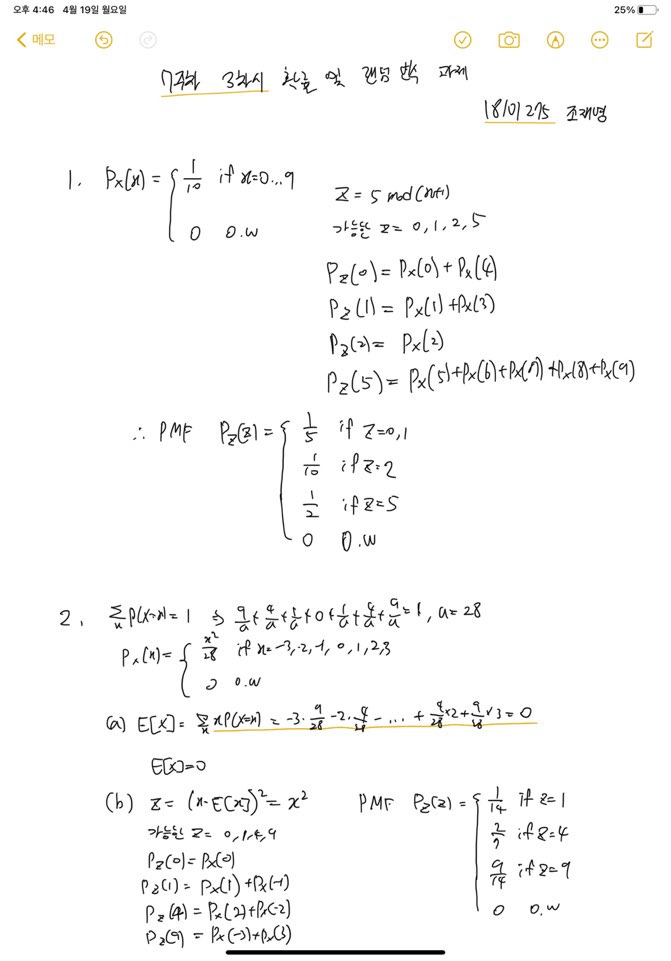 오후 4:46 4월 19일 월요일 25%
메모
7주차 3차시 확률 및 랜덤변수 과제
18101275 조재명
1. Px(x) = { 1/10 if x=0...9
0 O.W
Z = 5 mod(x+1)
가능한 Z = 0, 1, 2, 5
Pz(0) = Px(0) + Px(4)
Pz(1) = Px(1) + Px(3)
Pz(2) = Px(2)
Pz(5) = Px(5)+Px(6)+Px(7)+Px(8)+Px(9)
∴ PMF Pz(z) = { 1/5 if Z=0,1
1/10 if Z=2
1/2 if Z=5
0 O.W
2. Σx P(X=x) = 1 ⇒ 9/a + 4/a + 1/a + 0 + 1/a + 4/a + 9/a = 1, a=28
Px(x) = { x²/28 if x=-3,-2,-1,0,1,2,3
0 O.W
(a) E[X] = Σx xP(X=x) = -3·9/28 -2·4/28 - ... + 4/28×2 + 9/28×3 = 0
E[X]=0
(b) Z = (x-E[x])² = x²
가능한 Z = 0,1,4,9
Pz(0) = Px(0)
Pz(1) = Px(1) + Px(-1)
Pz(4) = Px(2)+Px(-2)
Pz(9) = Px(-3)+Px(3)
PMF Pz(z) = { 1/14 if Z=1
2/7 if Z=4
9/14 if Z=9
0 O.W